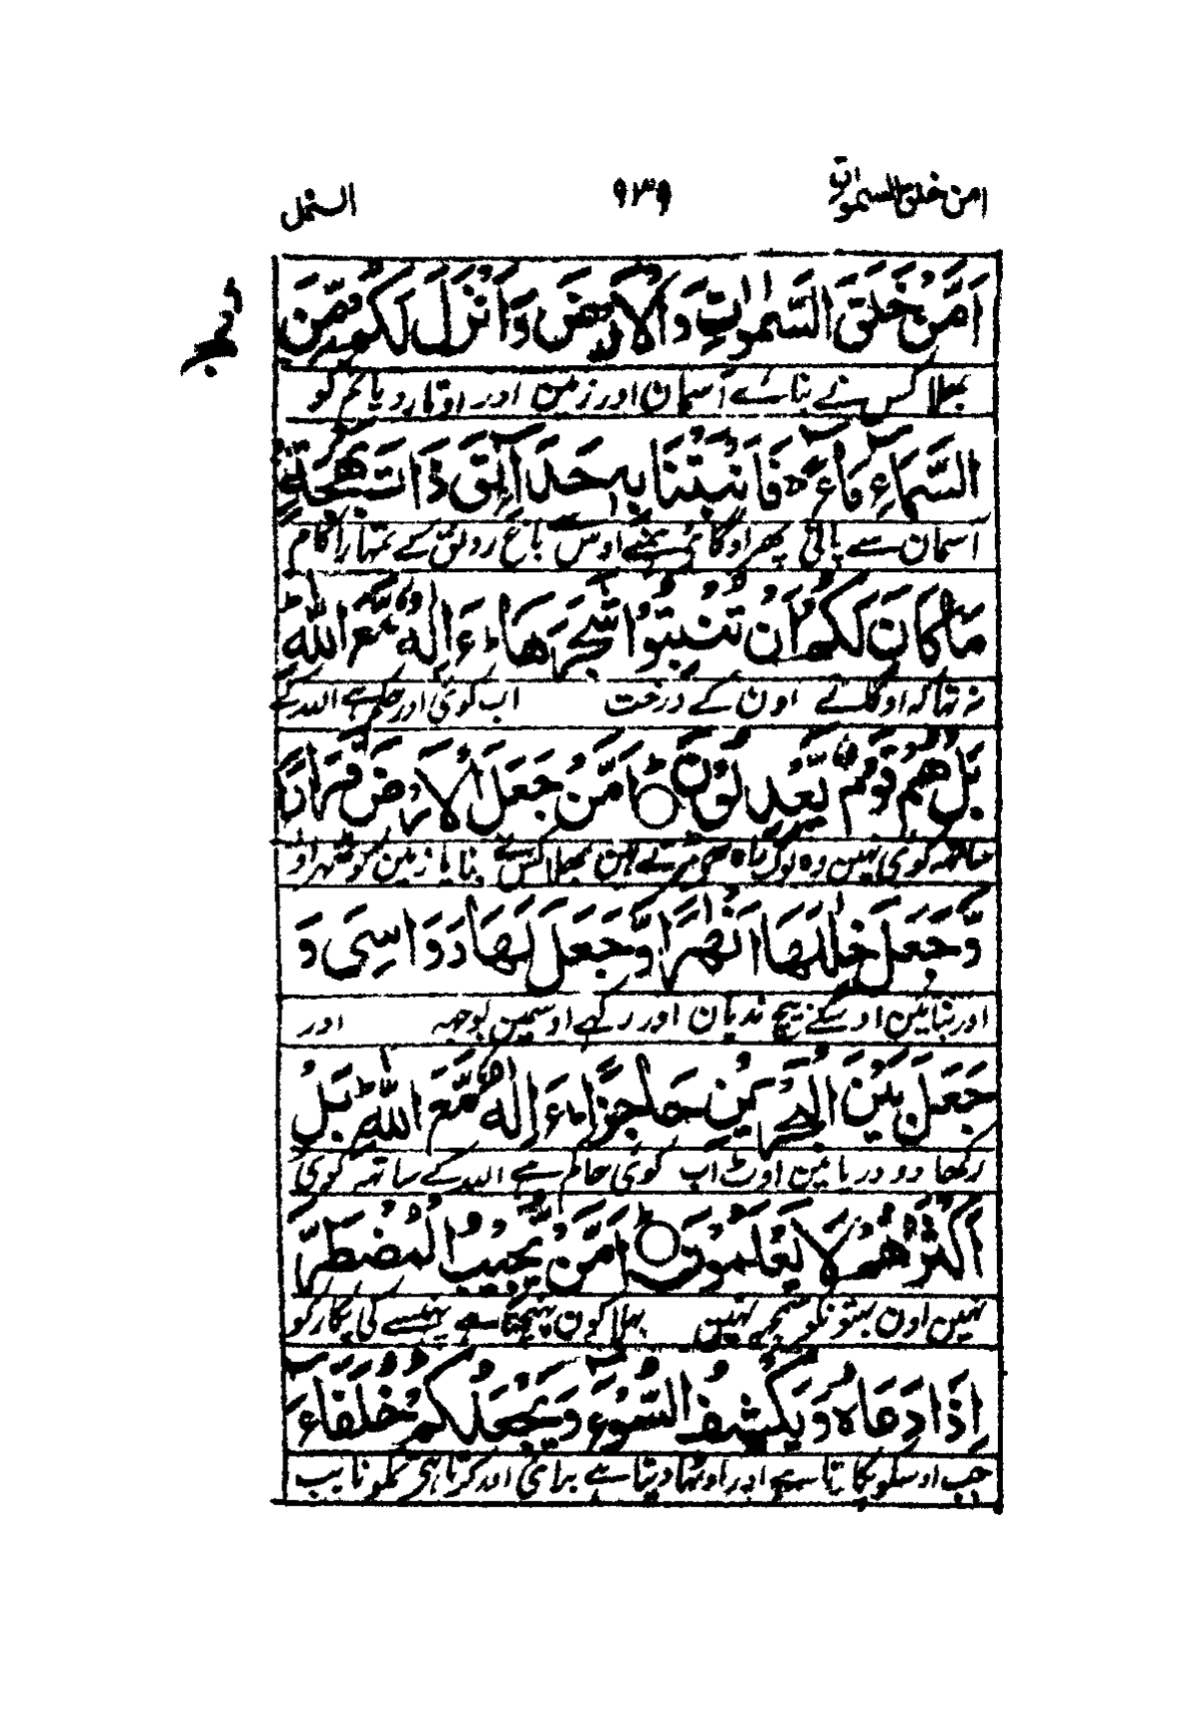 امن خلق السموات ۹۳۹ النمل
اَمَّنْ خَلَقَ السَّمٰوٰتِ وَالْاَرْضَ وَاَنْزَلَ لَكُمْ مِّنَ
بھلا کس نے بنائے آسمان اور زمین اور اوتار دیا تم کو
السَّمَآءِ مَآءً ۚ فَاَنْۢبَتْنَا بِهٖ حَدَآئِقَ ذَاتَ بَهْجَةٍ ۚ
آسمان سے پانی پھر اوگائے ہمنے اوس باغ رونق کے تمہارا کام
مَا كَانَ لَكُمْ اَنْ تُنْۢبِتُوْا شَجَرَهَا ؕ ءَاِلٰهٌ مَّعَ اللّٰهِ ؕ
نہ تہا کہ اوگاتے اون کے درخت اب کوئی اور حاکم ہے اللہ کے
بَلْ هُمْ قَوْمٌ يَّعْدِلُوْنَ ؕ اَمَّنْ جَعَلَ الْاَرْضَ قَرَارًا
ساتھ کوئی نہین وہ لوگ راہ سے مڑتے ہین بھلا کس نے بنایا زمین کو ٹھہراؤ
وَّجَعَلَ خِلٰلَهَا اَنْهٰرًا وَّجَعَلَ لَهَا رَوَاسِىَ وَ
اور بنائین اوسکے بیچ ندیان اور رکہے اوسمین بوجہہ اور
جَعَلَ بَيْنَ الْبَحْرَيْنِ حَاجِزًا ؕ ءَاِلٰهٌ مَّعَ اللّٰهِ ؕ بَلْ
رکھا دو دریا مین اوٹ اب کوئی حاکم ہے اللہ کے ساتہہ کوئی
اَكْثَرُهُمْ لَا يَعْلَمُوْنَ ؕ اَمَّنْ يُّجِيْبُ الْمُضْطَرَّ
نہین اون بہتونکو سمجہہ نہین بہلا کون پہنچتا ہے پہنسے کی پکار کو
اِذَا دَعَاهُ وَيَكْشِفُ السُّوْٓءَ وَيَجْعَلُكُمْ خُلَفَآءَ
جب اوسکو پکارتا ہے اور اوٹھا دیتا ہے برائی اور کرتا ہی تمکو نایب